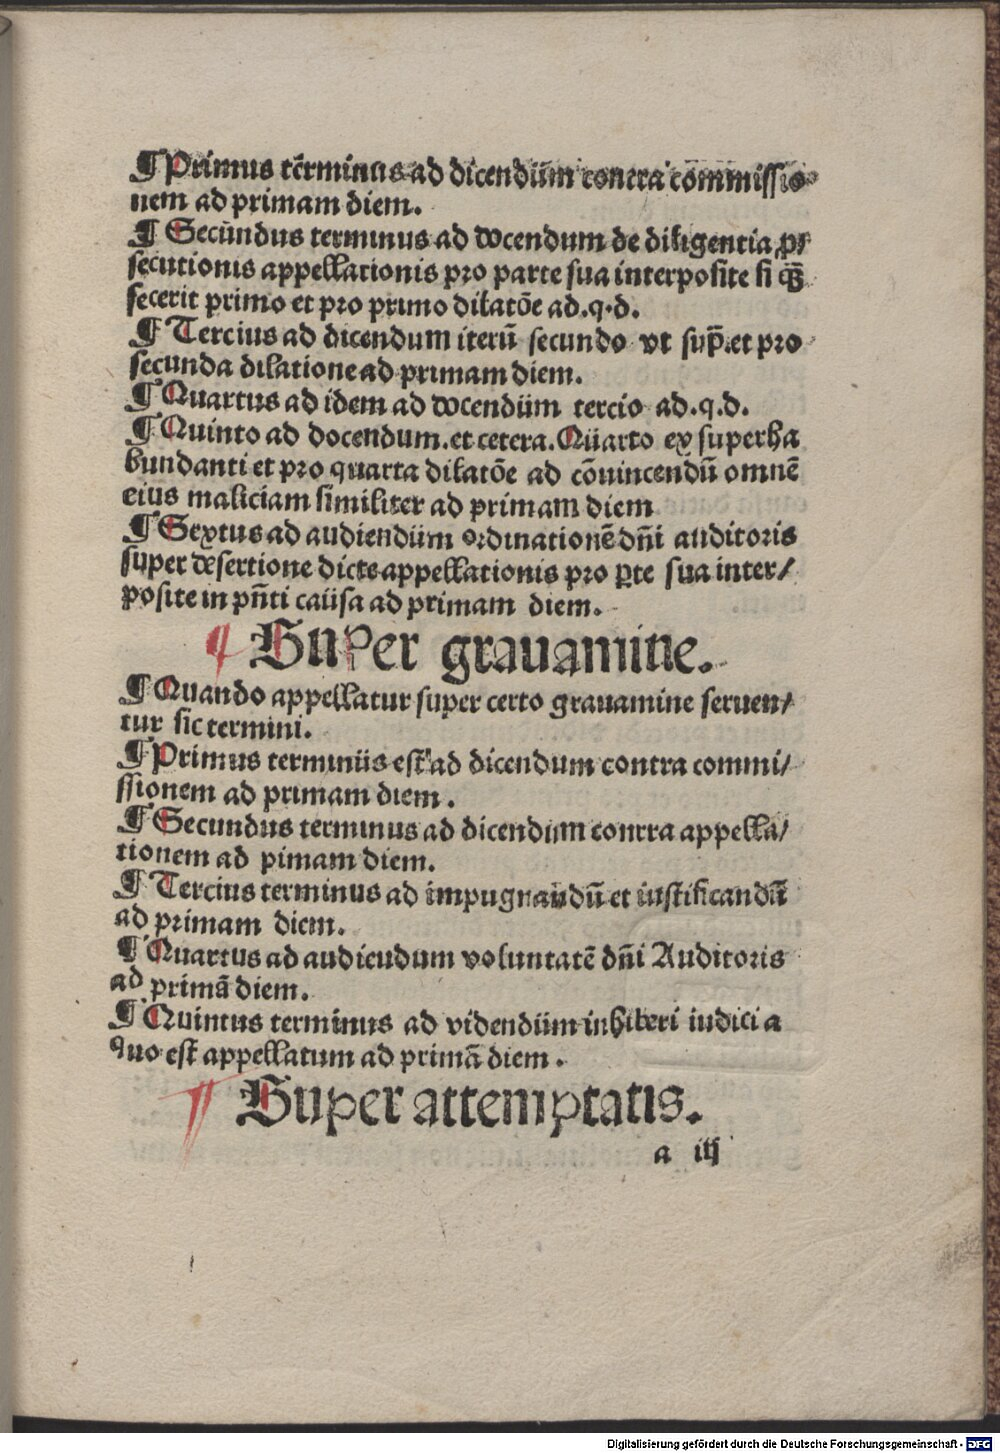 ¶ Primus terminus ad dicendum contra commissio-
nem ad primam diem.
¶ Secundus terminus ad docendum de diligentia ꝓ/
secutionis appellationis pro parte sua interposite si quā
fecerit primo et pro primo dilatōe ad.q.d.
¶ Tercius ad dicendum iterū secundo vt sup̄.et pro
secunda dilatione ad primam diem.
¶ Quartus ad idem ad docendum tercio ad.q.d.
¶ Quinto ad docendum.et cetera.Quarto ex superha
bundanti et pro quarta dilatōe ad cōuincendū omnē
eius maliciam similiter ad primam diem
¶ Sextus ad audiendum ordinationē dn̄i auditoris
super desertione dicte appellationis pro ꝑte sua inter/
posite in pn̄ti causa ad primam diem.
¶ Super grauamine.
¶ Quando appellatur super certo grauamine seruen/
tur sic termini.
¶ Primus terminus est ad dicendum contra commi/
ssionem ad primam diem.
¶ Secundus terminus ad dicendum contra appella/
tionem ad pimam diem.
¶ Tercius terminus ad impugnandū et iustificandū
ad primam diem.
¶ Quartus ad audiendum voluntatē dn̄i Auditoris
ad primā diem.
¶ Quintus terminus ad videndum inhiberi iudici a
quo est appellatum ad primā diem.
¶ Super attemptatis.
a iij
Digitalisierung gefördert durch die Deutsche Forschungsgemeinschaft - DFG